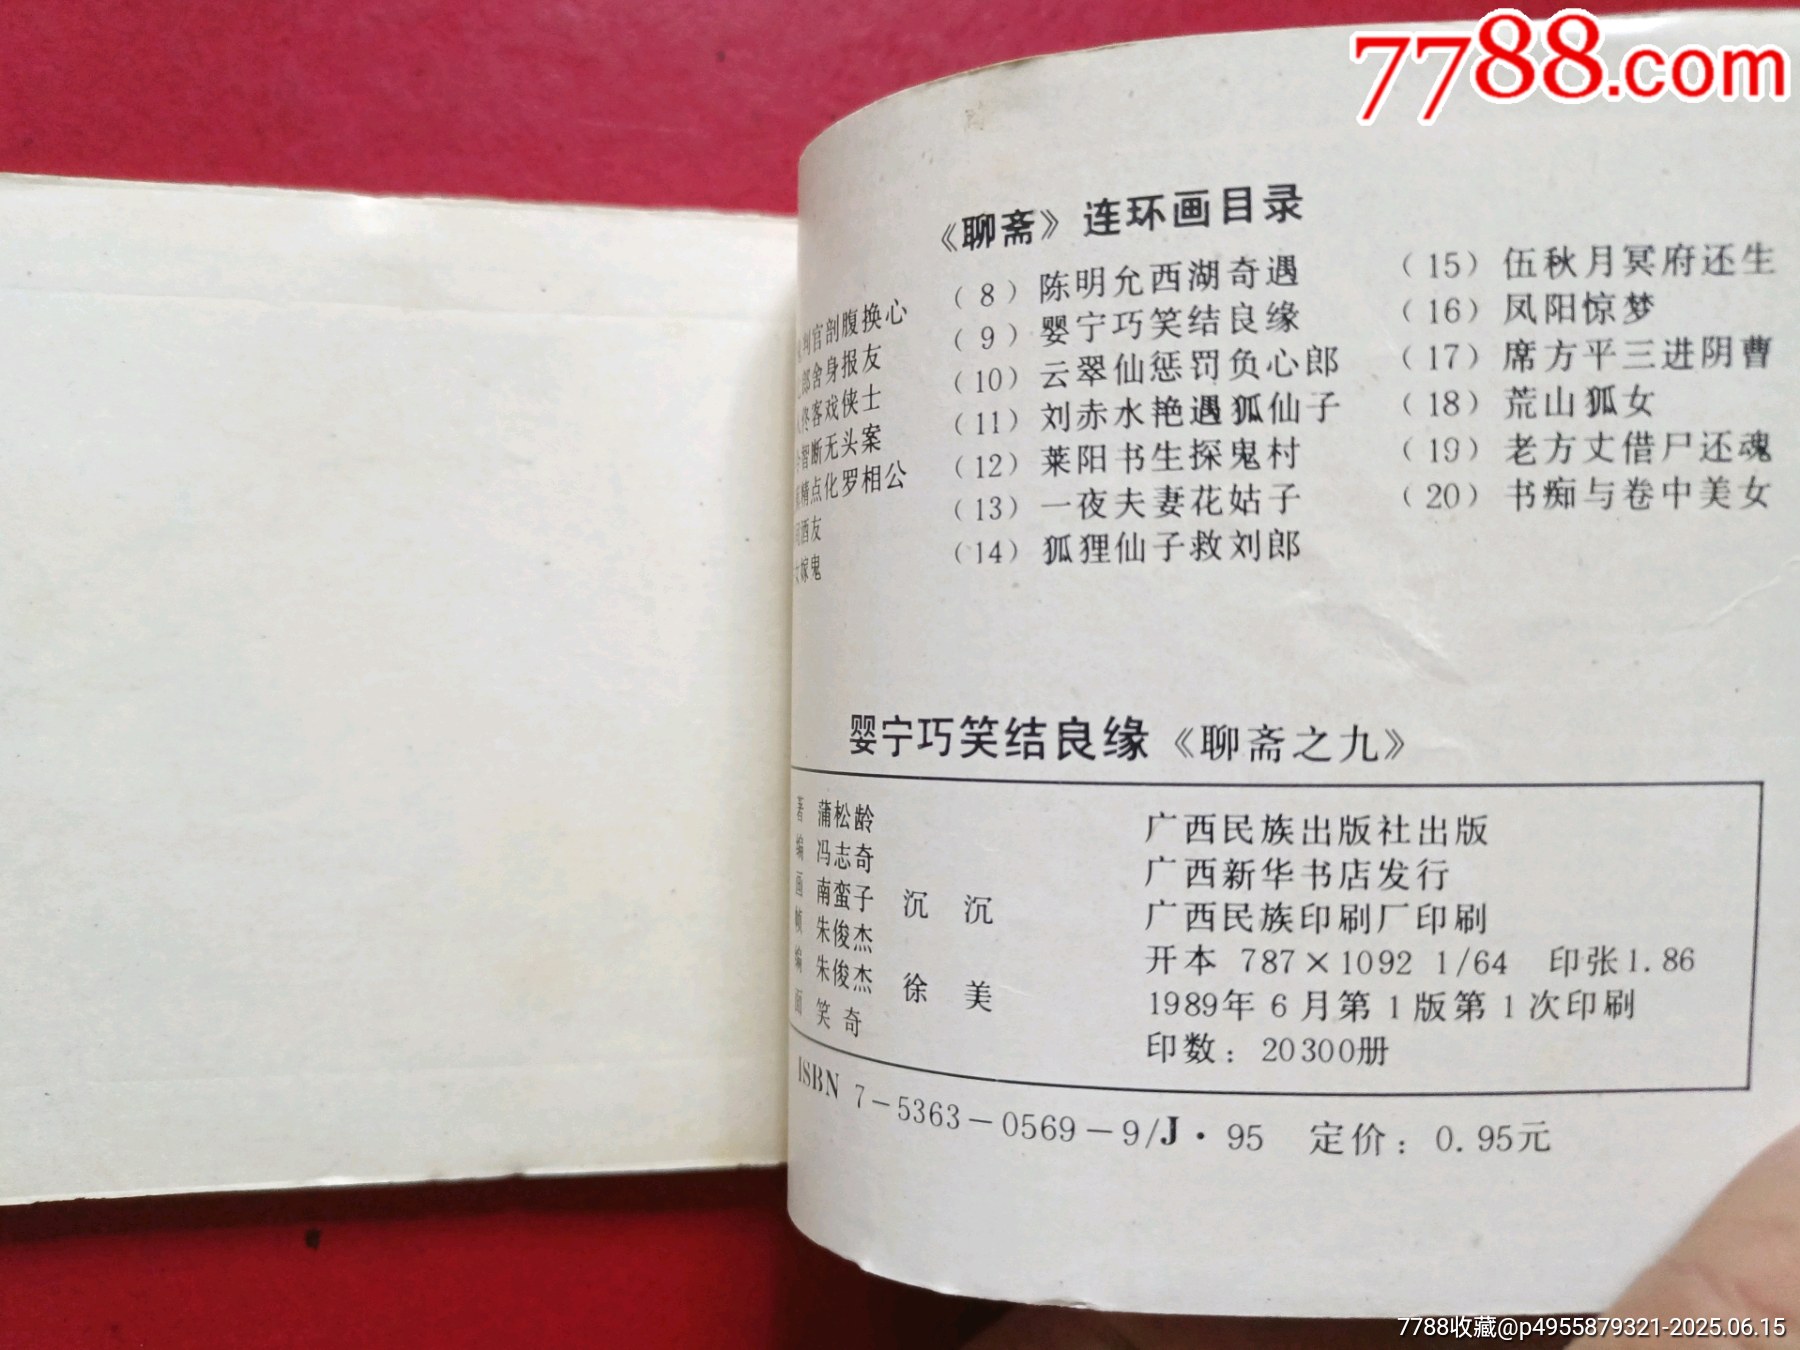 7788.com
《聊斋》连环画目录
判官剖腹换心
郎舍身报友
佟客戏侠士
智断无头案
精点化罗相公
酒友
嫁鬼
(8) 陈明允西湖奇遇
(9) 婴宁巧笑结良缘
(10) 云翠仙惩罚负心郎
(11) 刘赤水艳遇狐仙子
(12) 莱阳书生探鬼村
(13) 一夜夫妻花姑子
(14) 狐狸仙子救刘郎
(15) 伍秋月冥府还生
(16) 凤阳惊梦
(17) 席方平三进阴曹
(18) 荒山狐女
(19) 老方丈借尸还魂
(20) 书痴与卷中美女
婴宁巧笑结良缘《聊斋之九》
著 蒲松龄
编 冯志奇
画 南蛮子 沉沉
帧 朱俊杰
编 朱俊杰 徐美
面 笑奇
广西民族出版社出版
广西新华书店发行
广西民族印刷厂印刷
开本 787×1092 1/64 印张1.86
1989年6月第1版第1次印刷
印数：20300册
ISBN 7-5363-0569-9/J·95 定价：0.95元
7788收藏@p4955879321-2025.06.15